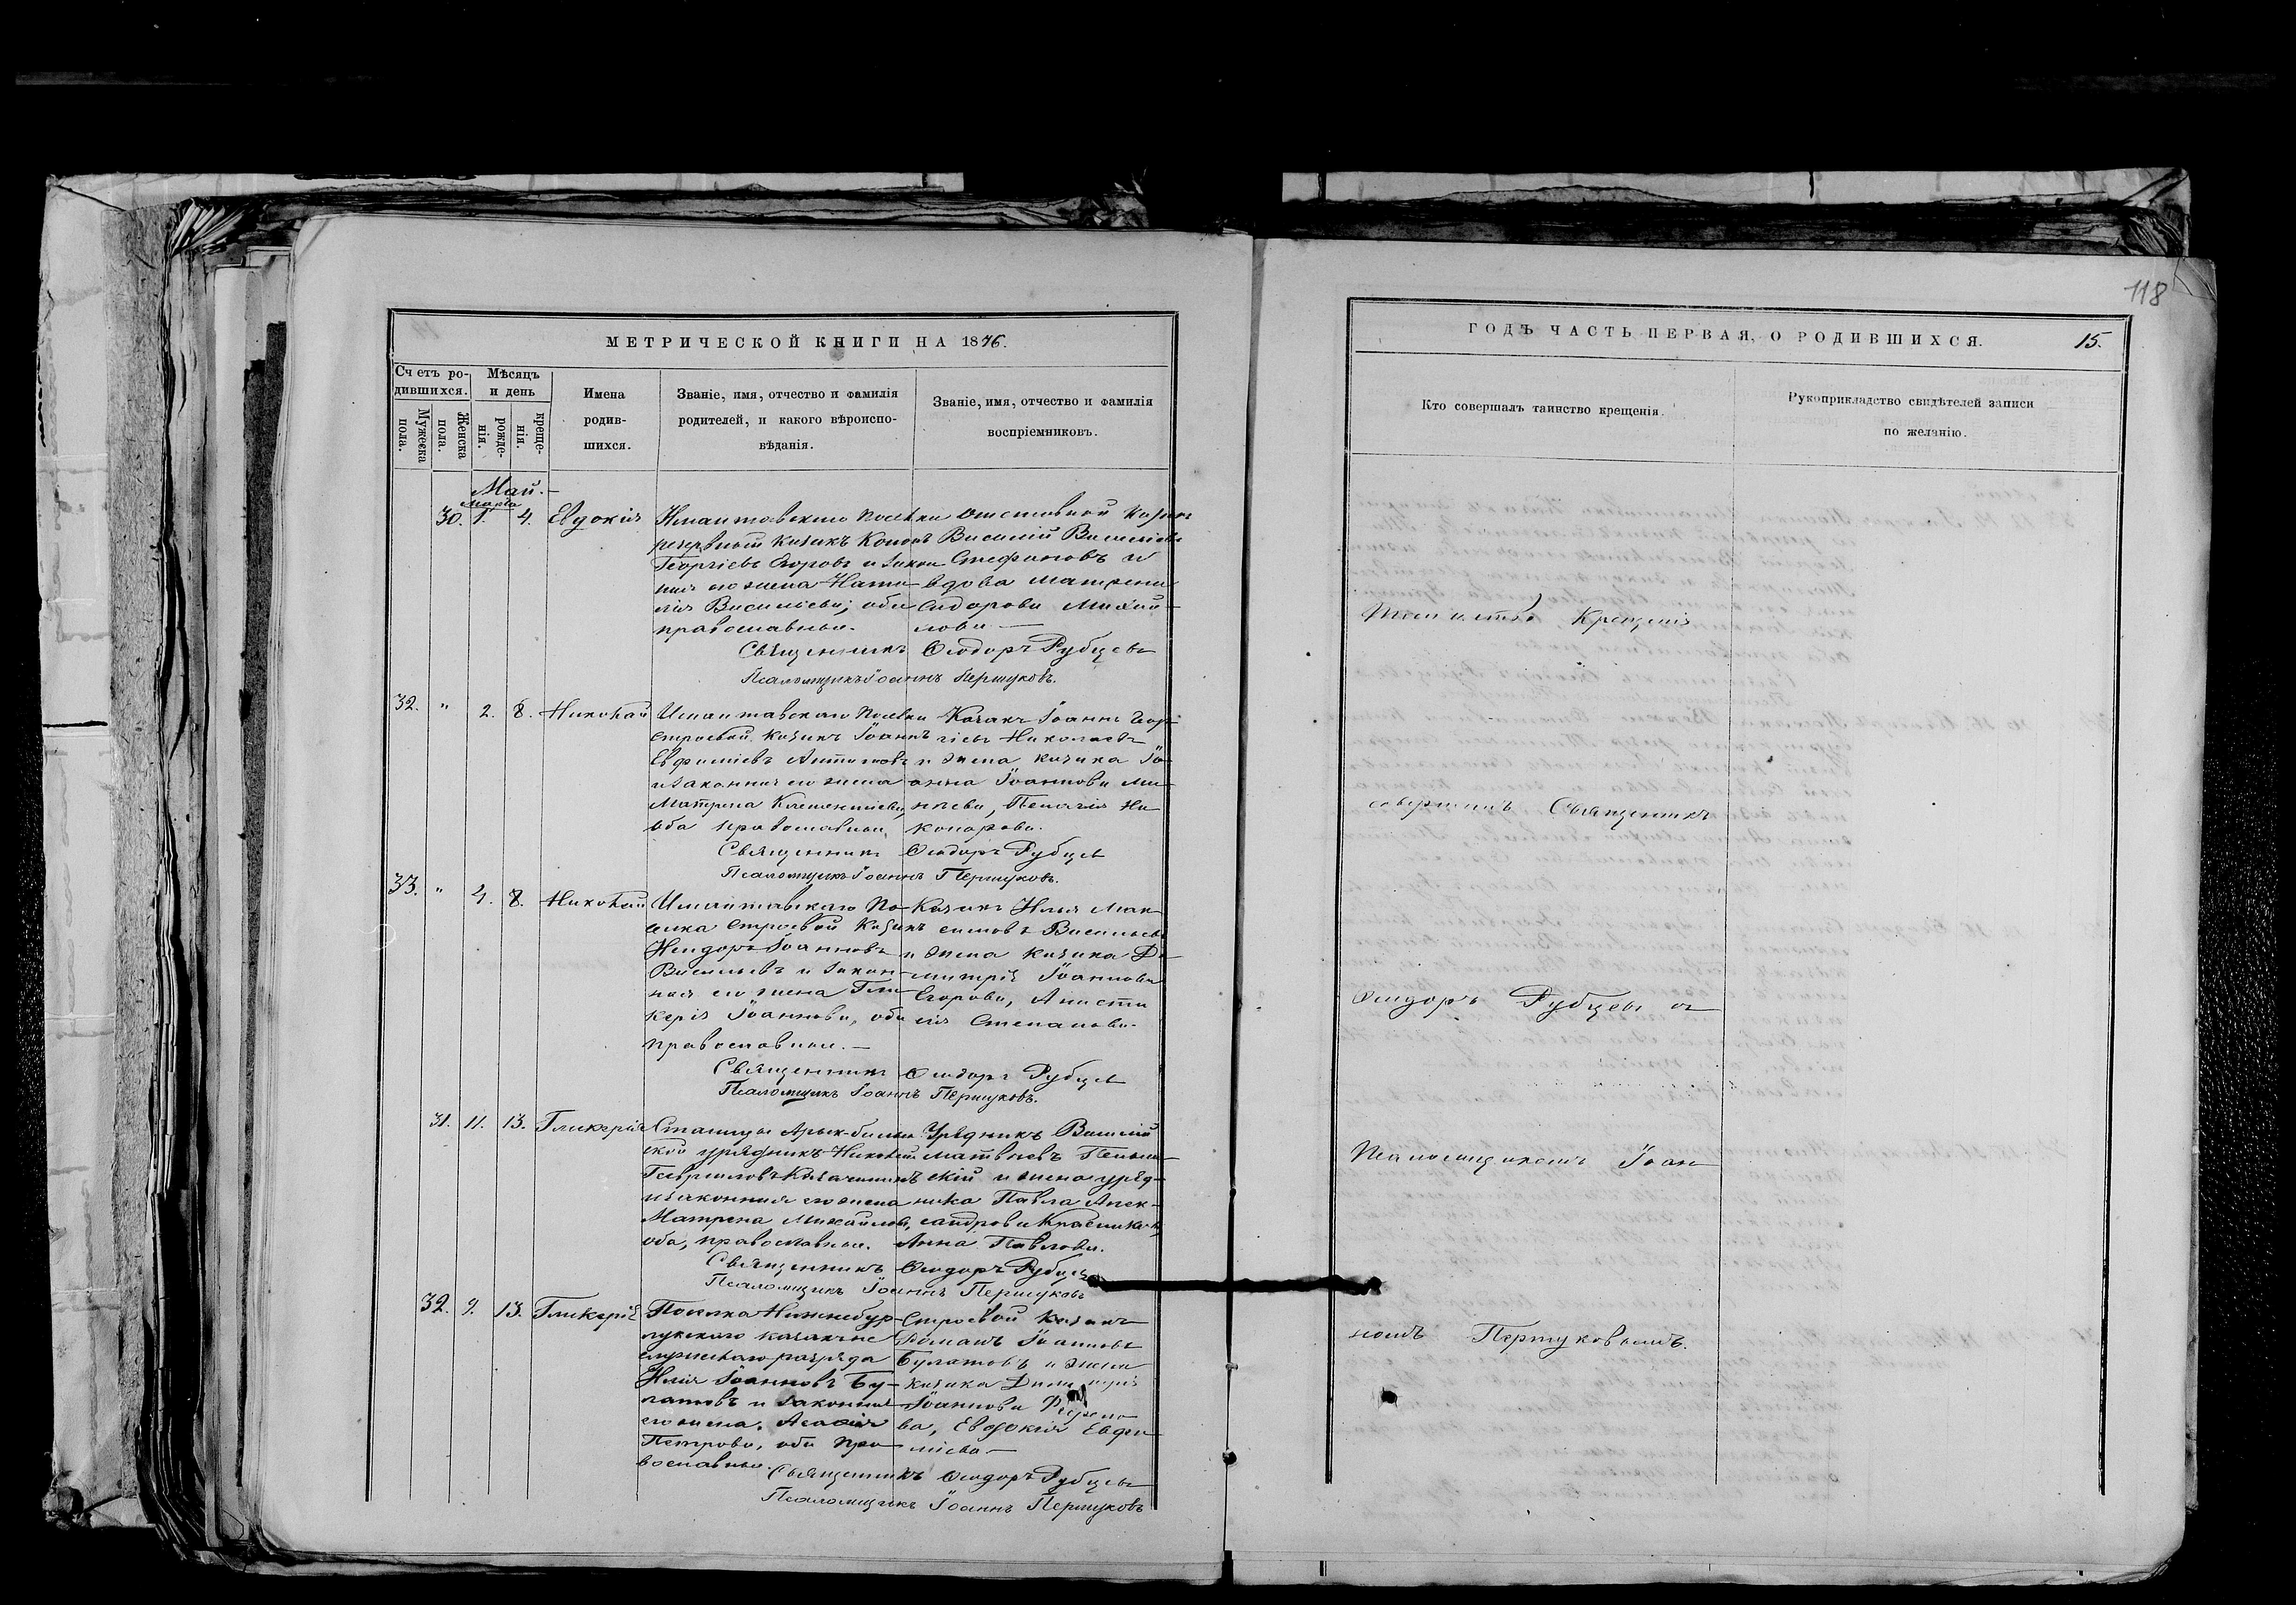 118
МЕТРИЧЕСКОЙ КНИГИ НА 1876.
Счетъ родившихся.
Мужеска пола.
Женска пола.
Мѣсяцъ и день
рожденія.
крещенія.
Имена родившихся.
Званіе, имя, отчество и фамилія родителей, и какого вѣроисповѣданія.
Званіе, имя, отчество и фамилія воспріемниковъ.
Май.
Марта
30. 1. 4. Евдокія
резервный казакъ
Георгіевъ Егоровъ и закон
ная его жена Ната
лія Васильева; оба
православные.
Отставной казакъ
Василій Васильевъ
Стефановъ и
вдова Матрена
Сидорова Михай
лова
Священникъ Ѳеодоръ Рубцевъ
Псаломщикъ Іоаннъ Першуковъ.
32. " 2. 8. Николай
строевой казакъ Іоаннъ
Евфиміевъ
и законная его жена
Матрена
оба православные,
Казакъ Іоаннъ Геор
гіевъ Николаевъ
и жена казака Іо
анна Іоаннова Ми
Пелагія Ни
канорова.
Священникъ Ѳеодоръ Рубцевъ
Псаломщикъ Іоаннъ Першуковъ.
33. " 4. 8. Николай
селка строевой казакъ
Іоанновъ
Васильевъ и закон
ная его жена Гли
керія Іоаннова, оба
православные.
Казакъ Илья Мак
симовъ Васильевъ
и жена казака Ди
митрія Іоаннова
Егорова, Анаста
сія Степанова.
Священникъ Ѳеодоръ Рубцевъ
Псаломщикъ Іоаннъ Першуковъ.
31. 11. 13. Гликерія
Станицы Арык-балык
ской урядникъ Николай
Гавриловъ
и законная его жена
Матрена Михайлова,
оба, православные.
Урядникъ Василій
Матвѣевъ
скій и жена уряд
ника Павла Алек
сандрова
Анна Павлова.
Священникъ Ѳеодоръ Рубцевъ
Псаломщикъ Іоаннъ Першуковъ
32. 9. 13. Гликерія
Поселка Нижнебур
лукскаго казакъ не
служилаго разряда
Илія Іоанновъ Бу
латовъ и законная
его жена
Петрова, оба пра
вославные.
Строевой казакъ
Романъ Іоанновъ
Булатовъ и жена
казака Димитрія
Іоаннова
ва, Евдокія Евфи
міева
Священникъ Ѳеодоръ Рубцевъ
Псаломщикъ Іоаннъ Першуковъ
ГОДЪ ЧАСТЬ ПЕРВАЯ, О РОДИВШИХСЯ. 15.
Кто совершалъ таинство крещенія.
Рукоприкладство свидѣтелей записи по желанію.
Таинство Крещенія
совершилъ Священникъ
Ѳеодоръ Рубцевъ съ
Псаломщикомъ Іоан
номъ Першуковымъ.